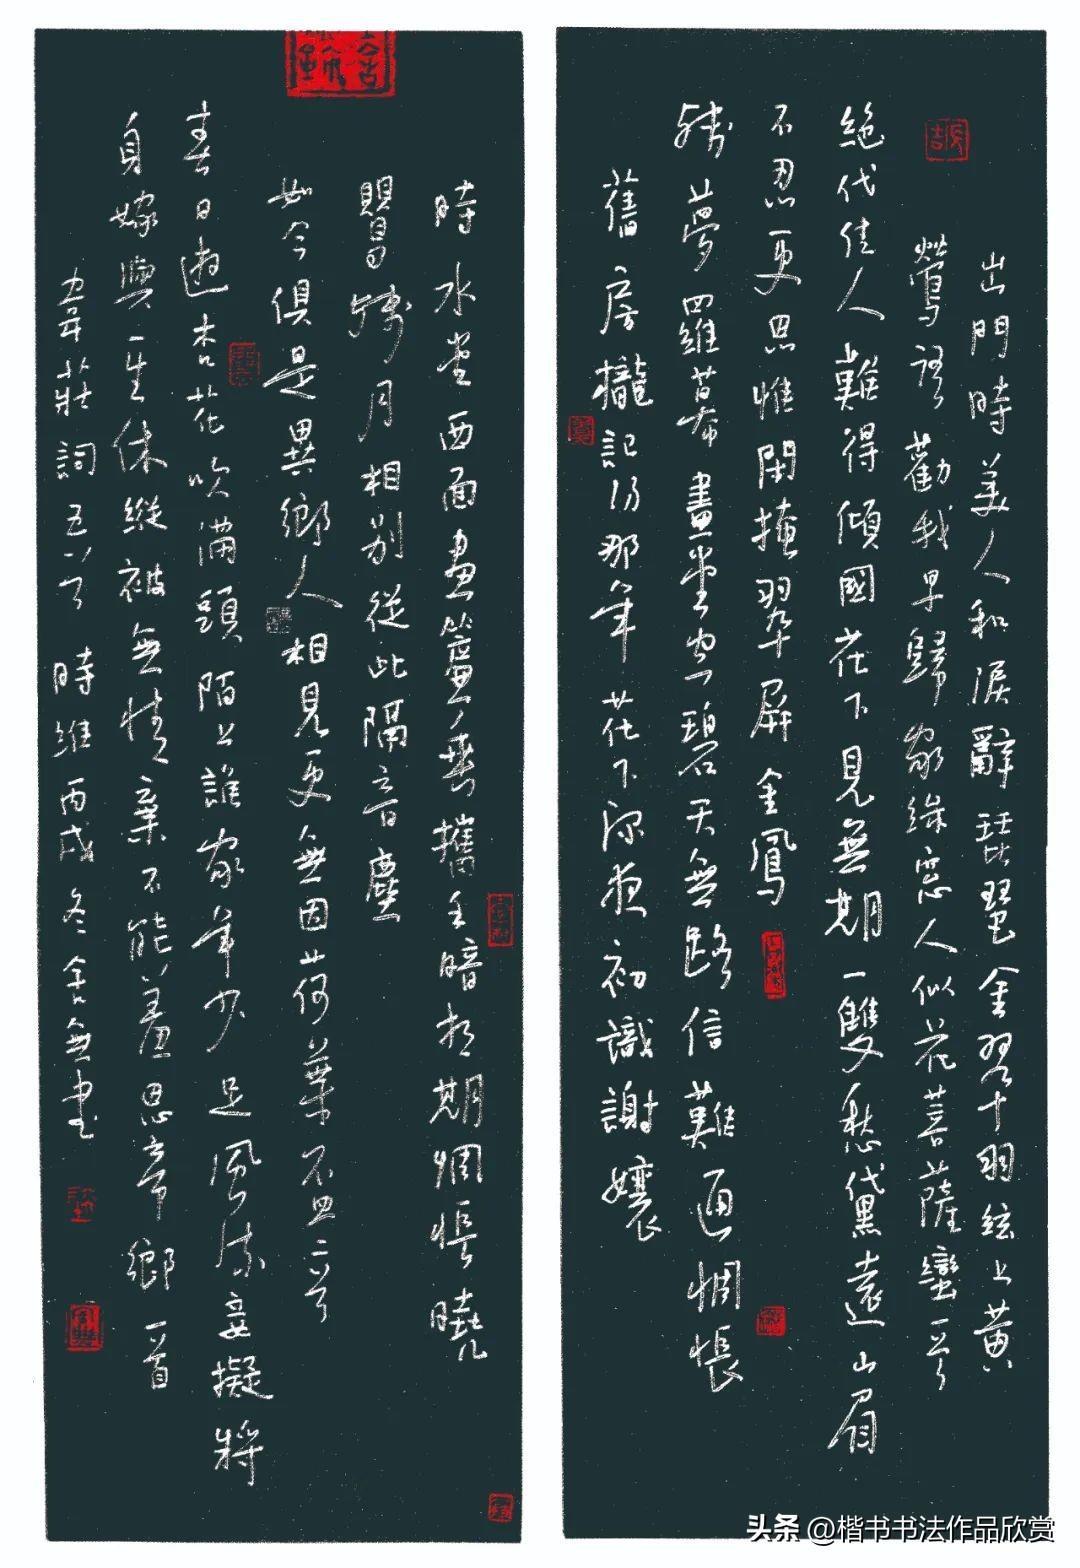 出門時美人和淚辭琵琶金翠羽絃上黃
鶯語勸我早歸家綠窓人似花菩薩蠻一首
絕代佳人難得傾國花下見無期一雙愁黛遠山眉
不忍更思惟閑掩翠屏金鳳
殘夢羅幕畫堂空碧天無路信難通惆悵
舊房櫳記得那年花下深夜初識謝孃
時水堂西面畫簾垂攜手暗相期惆悵曉
鶯殘月相別從此隔音塵
如今俱是異鄉人相見更無因荷葉盃二首
春日遊杏花吹滿頭陌上誰家年少足風流妾擬將
身嫁與一生休縱被無情棄不能羞思帝鄉一首
韋莊詞五首時維丙戌冬舍無書
头条 @楷书书法作品欣赏